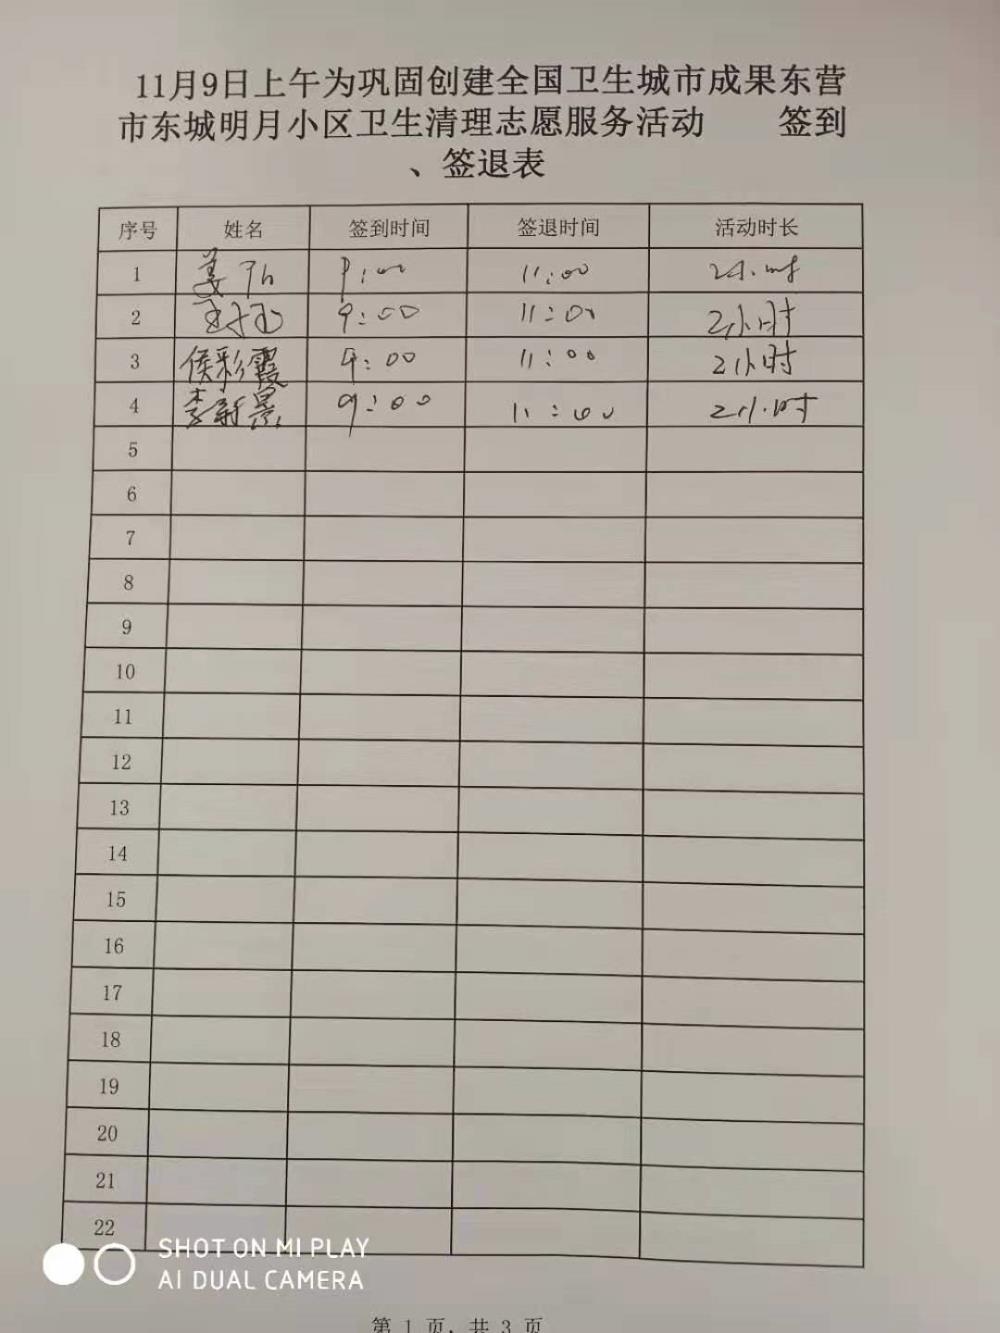 11月9日上午为巩固创建全国卫生城市成果东营
市东城明月小区卫生清理志愿服务活动 签到
、签退表
序号 姓名 签到时间 签退时间 活动时长
1 姜 9:00 11:00
2 9:00 11:00 2小时
3 侯彩霞 9:00 11:00 2小时
4 李新景 9:00 11:00 2小时
5
6
7
8
9
10
11
12
13
14
15
16
17
18
19
20
21
22
SHOT ON MI PLAY
AI DUAL CAMERA
第 1 页，共 3 页